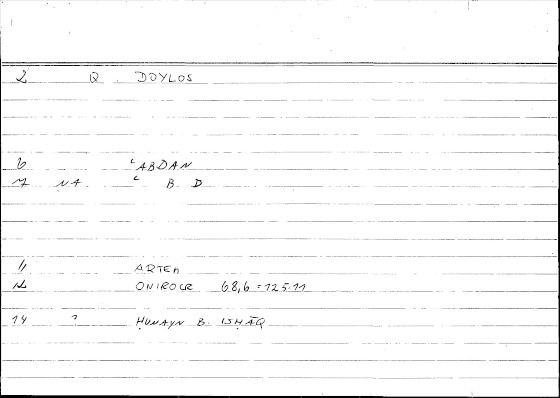 2 Q DOYLOS
6 ʿABDAN
7 NA ʿB D
11 ARTEM
12 ONIROCR 68,6 = 125.11
14 ? ḤUNAYN B. ISḤĀQ